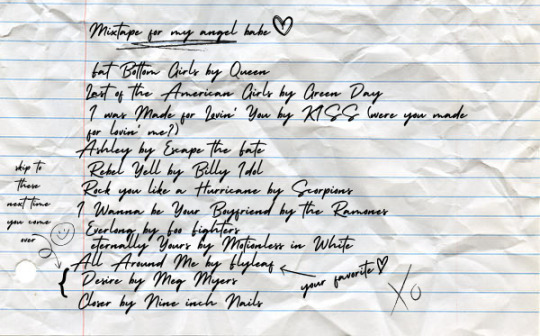 Mixtape for my angel babe
fat Bottom Girls by Queen
Last of the American Girls by Green Day
I was Made for Lovin' You by KISS (were you made
for lovin' me?)
Ashley by Escape the fate
Rebel Yell by Billy Idol
Rock you like a Hurricane by Scorpions
I Wanna be Your Boyfriend by the Ramones
Everlong by foo fighters
eternally Yours by Motionless in White
All Around Me by flyleaf
Desire by Meg Myers
Closer by Nine inch Nails
skip to
these
next time
you come
over
your favorite
Xo